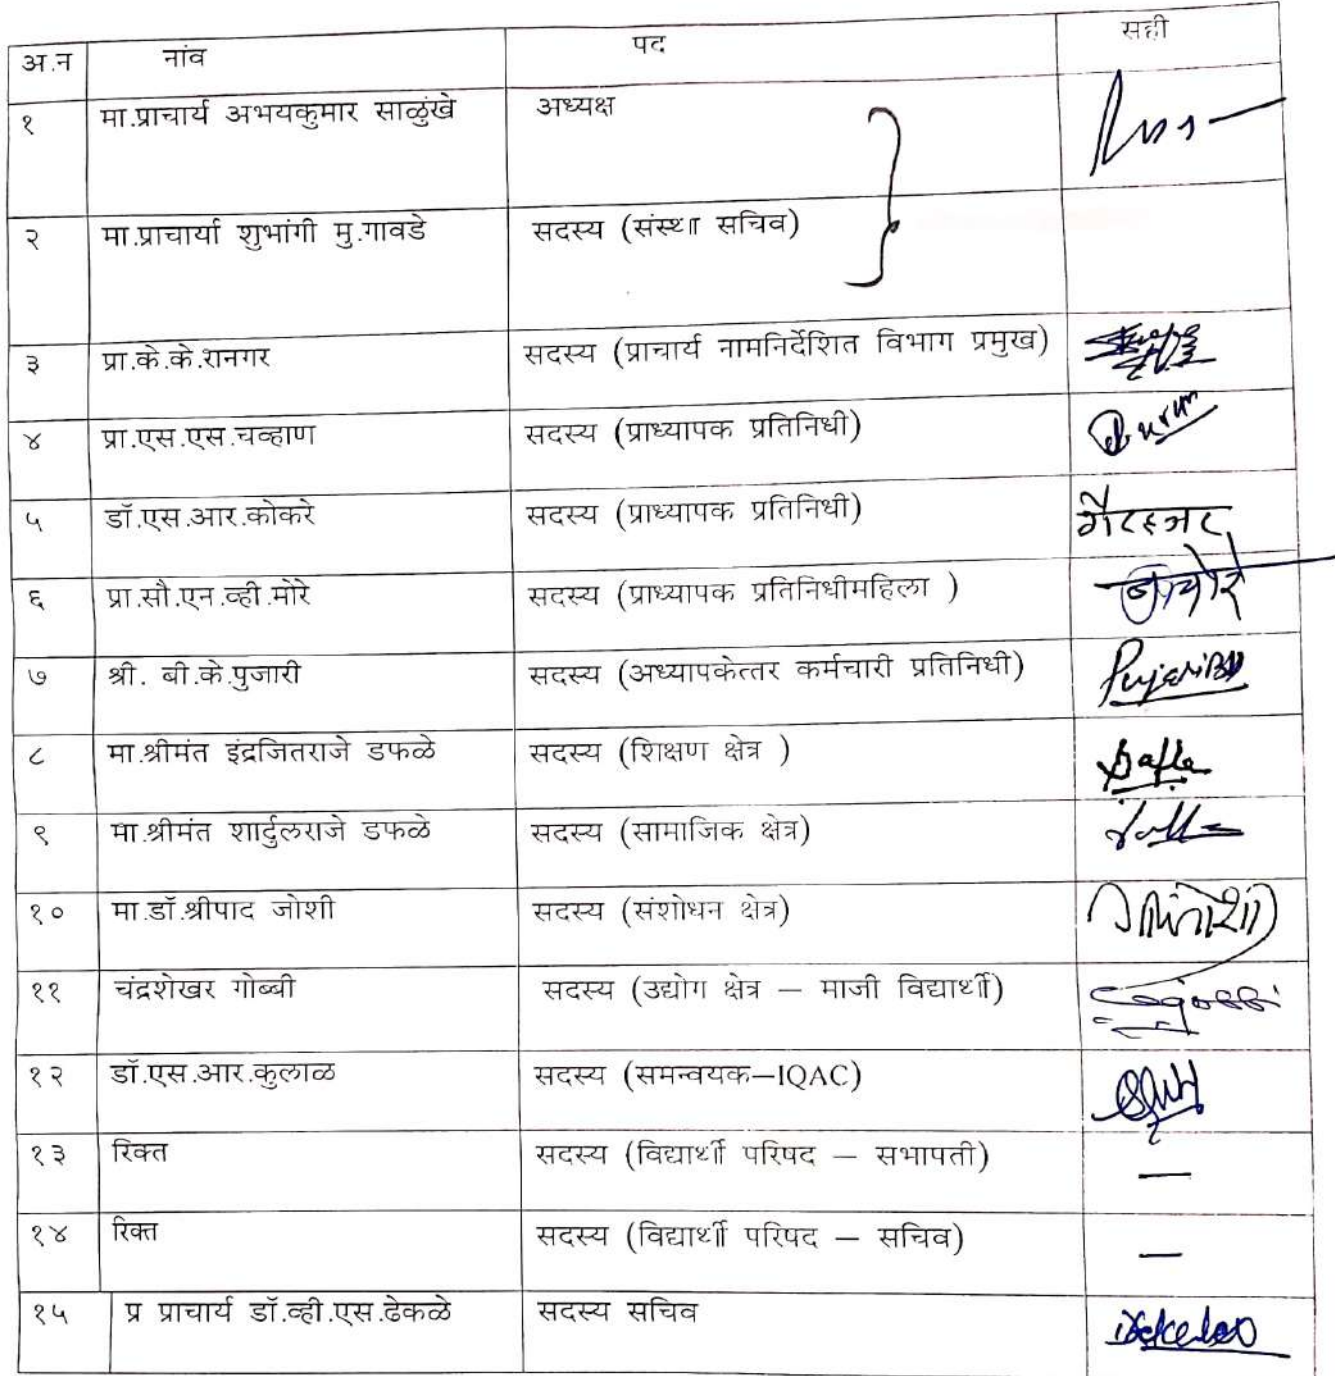 अ.न नांव पद सही
१ मा.प्राचार्य अभयकुमार साळुंखे अध्यक्ष
२ मा.प्राचार्या शुभांगी मु.गावडे सदस्य (संस्था सचिव)
३ प्रा.के.के.रानगर सदस्य (प्राचार्य नामनिर्देशित विभाग प्रमुख)
४ प्रा.एस.एस.चव्हाण सदस्य (प्राध्यापक प्रतिनिधी)
५ डॉ.एस.आर.कोकरे सदस्य (प्राध्यापक प्रतिनिधी) गैरहजर
६ प्रा.सौ.एन.व्ही.मोरे सदस्य (प्राध्यापक प्रतिनिधीमहिला )
७ श्री. बी.के.पुजारी सदस्य (अध्यापकेत्तर कर्मचारी प्रतिनिधी)
८ मा.श्रीमंत इंद्रजितराजे डफळे सदस्य (शिक्षण क्षेत्र )
९ मा.श्रीमंत शार्दुलराजे डफळे सदस्य (सामाजिक क्षेत्र)
१० मा.डॉ.श्रीपाद जोशी सदस्य (संशोधन क्षेत्र)
११ चंद्रशेखर गोब्बी सदस्य (उद्योग क्षेत्र – माजी विद्यार्थी)
१२ डॉ.एस.आर.कुलाळ सदस्य (समन्वयक–IQAC)
१३ रिक्त सदस्य (विद्यार्थी परिषद – सभापती) —
१४ रिक्त सदस्य (विद्यार्थी परिषद – सचिव) —
१५ प्र प्राचार्य डॉ.व्ही.एस.ढेकळे सदस्य सचिव